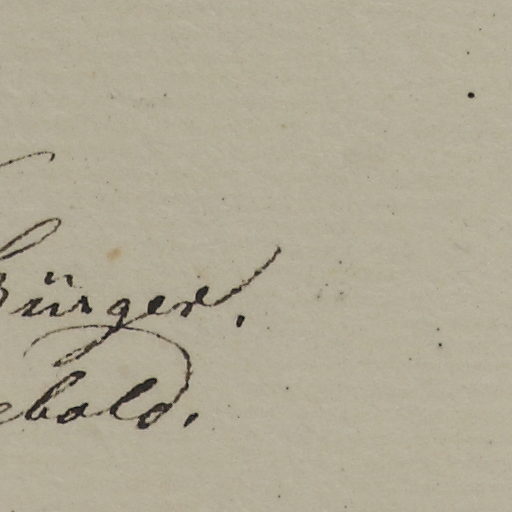 Bürger.
ebald.